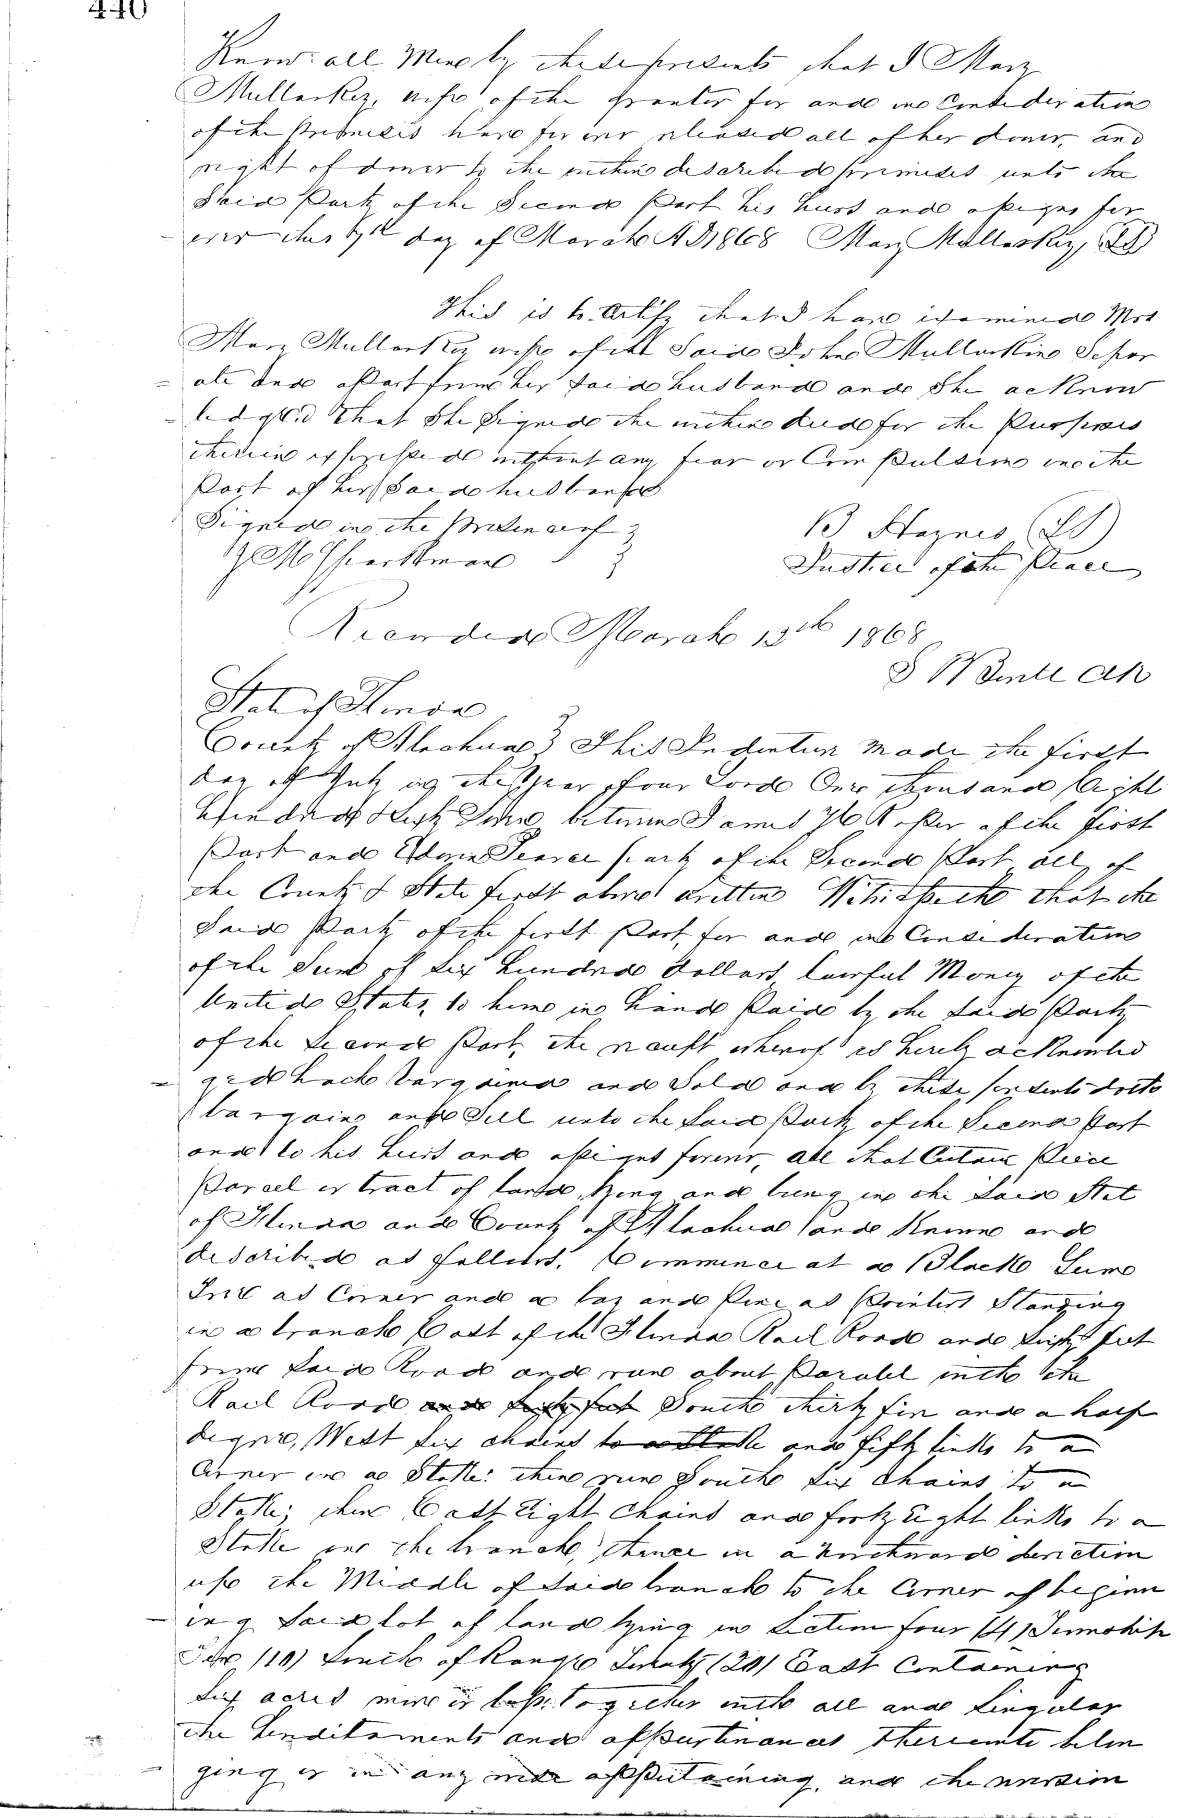 440
Know all Men by these presents that I Mary
Mullarkey, wife of the grantor for and in Consideration
of the Premises have for ever released all of her dower, and
right of dower to the within described premises unto the
Said Party of the Second Part his heirs and assigns for
ever this 7th day of March A D 1868 Mary Mullarkey, (LS)
This is to Certify that I have examined Mrs
Mary Mullarkey wife of the Said John Mullarkin Separ
ate and apart from her Said husband and She acknow
ledged that She Signed the within deed for the Purposes
therein expressed without any fear or Compulsion on the
Part of her Said husband
Signed in the Presence of
J M Sparkman
B Haynes (LS)
Justice of the Peace
Recorded March 13th 1868
State of Florida
County of Alachua } This Indenture Made the first
day of July in the Year of our Lord One thousand Eight
Hundred Sixty between James H Roper of the first
Part and Edwin Pearce party of the Second Part all of
the County & State first above written Witnesseth that the
Said Party of the first Part, for and in Consideration
of the Sum of Six hundred dollars lawful Money of the
United States, to him in hand Paid by the Said Party
of the Second Part, the receipt whereof is hereby acknowled
ged hath bargained and Sold and by these presents doth
bargain and Sell unto the Said Party of the Second Part
and to his heirs and assigns forever, all that Certain Piece
Parcel or tract of land lying and being in the Said State
of Florida and County of Alachua and Known and
described as follows. Commence at a Black Gum
Tree as Corner and a bay and Pine as Pointers Standing
in a branch East of the Florida Rail Road and Sixty feet
from Said Road and run about Parallel with the
Rail Road and Sixty feet South thirty five and a half
degree, West Six chains to a Stake and fifty links to a
Corner in a Stake: then run South Six Chains to a
Stake; then East Eight Chains and forty Eight links to a
Stake in the branch, thence in a Northward direction
up the Middle of Said branch to the Corner of beginn
ing Said lot of land lying in Section four (4) Township
Ten (10) South of Range Twenty (20) East Containing
Six acres more or less. Together with all and Singular
the hereditaments and appurtenances thereunto belon
ging or in any wise appertaining, and the reversion